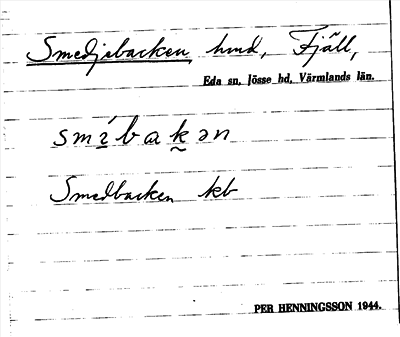 Smedjebacken, hmd, Fjäll,
Eda sn, Jösse hd, Värmlands län.
Smedbacken kb
PER HENNINGSSON 1944.